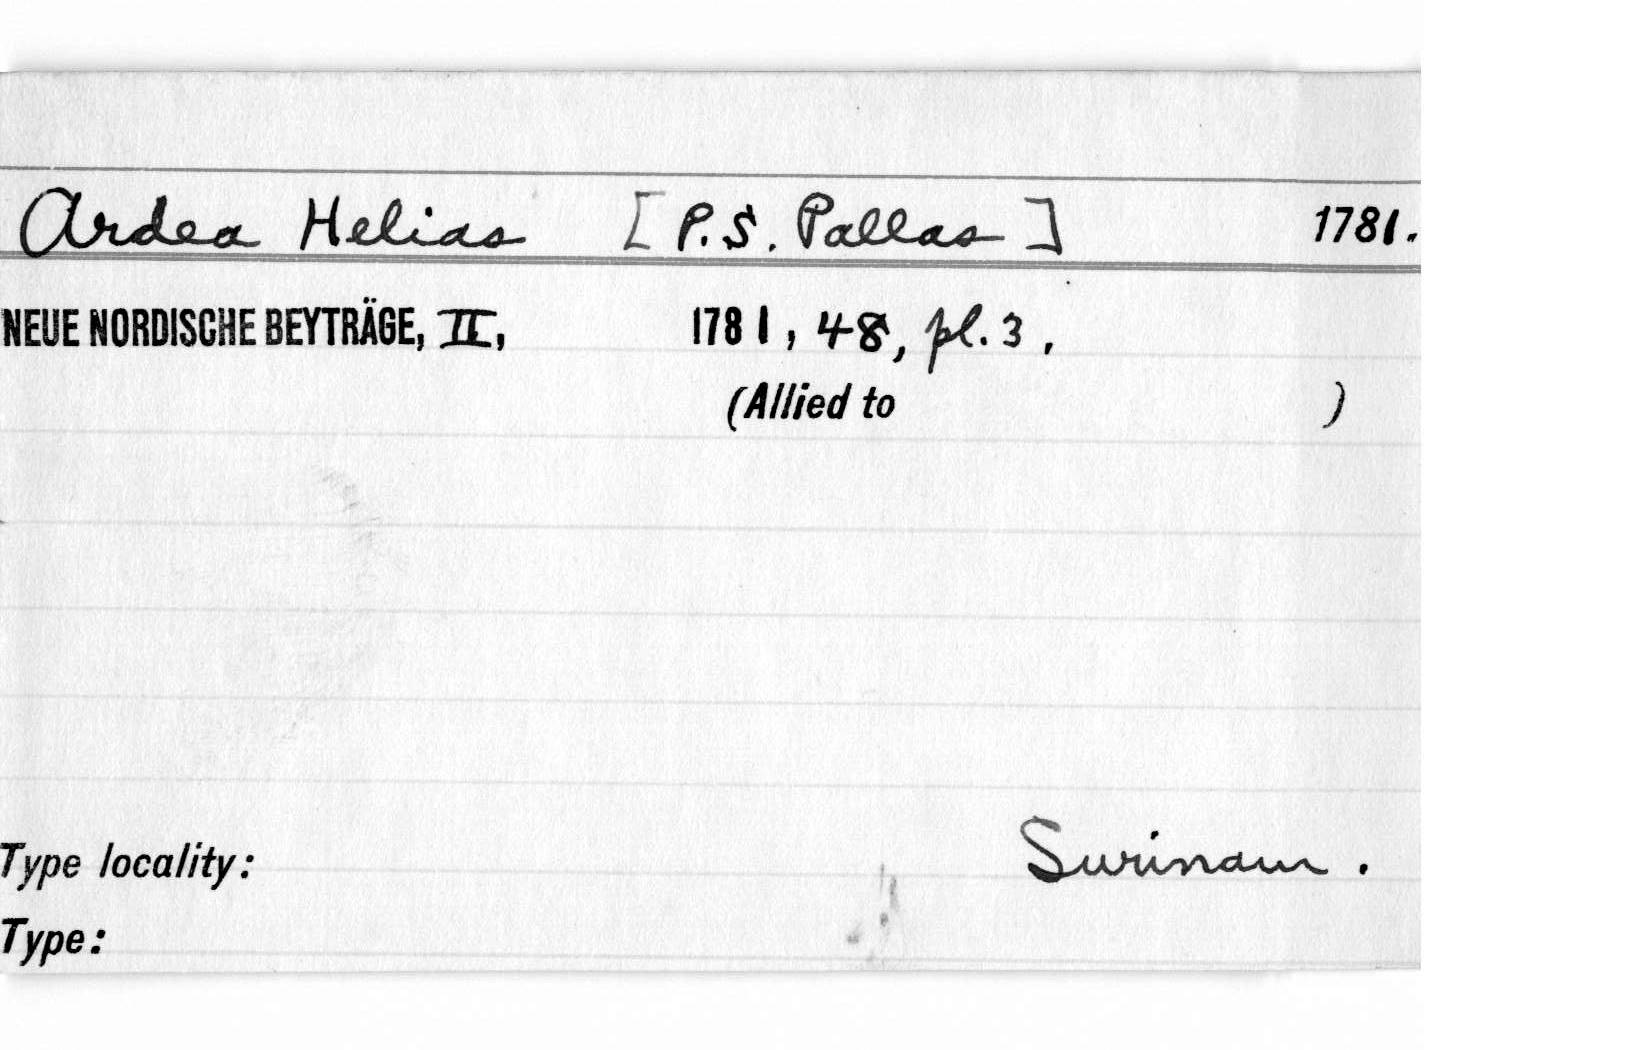 Ardea Helias [P.S. Pallas] 1781.
NEUE NORDISCHE BEYTRÄGE, II, 1781, 48, pl. 3.
(Allied to )
Type locality: Surinam.
Type: